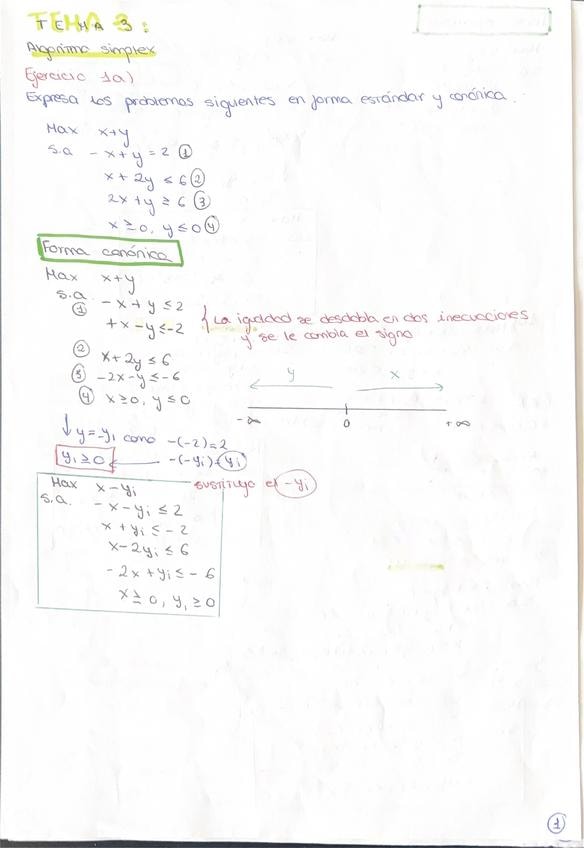 TEMA 3:
Algoritmo simplex
Ejercicio 1a)
Expresa los problemas siguientes en forma estándar y canónica.
Max x+y
s.a -x+y=2 ①
x+2y ≤ 6 ②
2x+y ≥ 6 ③
x ≥ 0, y ≤ 0 ④
Forma canónica
Max x+y
s.a. ① -x+y ≤ 2
+x-y ≤ -2 { La igualdad se desdobla en dos inecuaciones
y se le cambia el signo
② x+2y ≤ 6
③ -2x-y ≤ -6
④ x ≥ 0, y ≤ 0
y x
-∞ 0 +∞
↓ y=-y₁ como -(-2)=2
y₁ ≥ 0 ← -(-y₁)=y₁
sustituyo el -y₁
Max x-y₁
s.a. -x-y₁ ≤ 2
x+y₁ ≤ -2
x-2y₁ ≤ 6
-2x+y₁ ≤ -6
x ≥ 0, y₁ ≥ 0
1